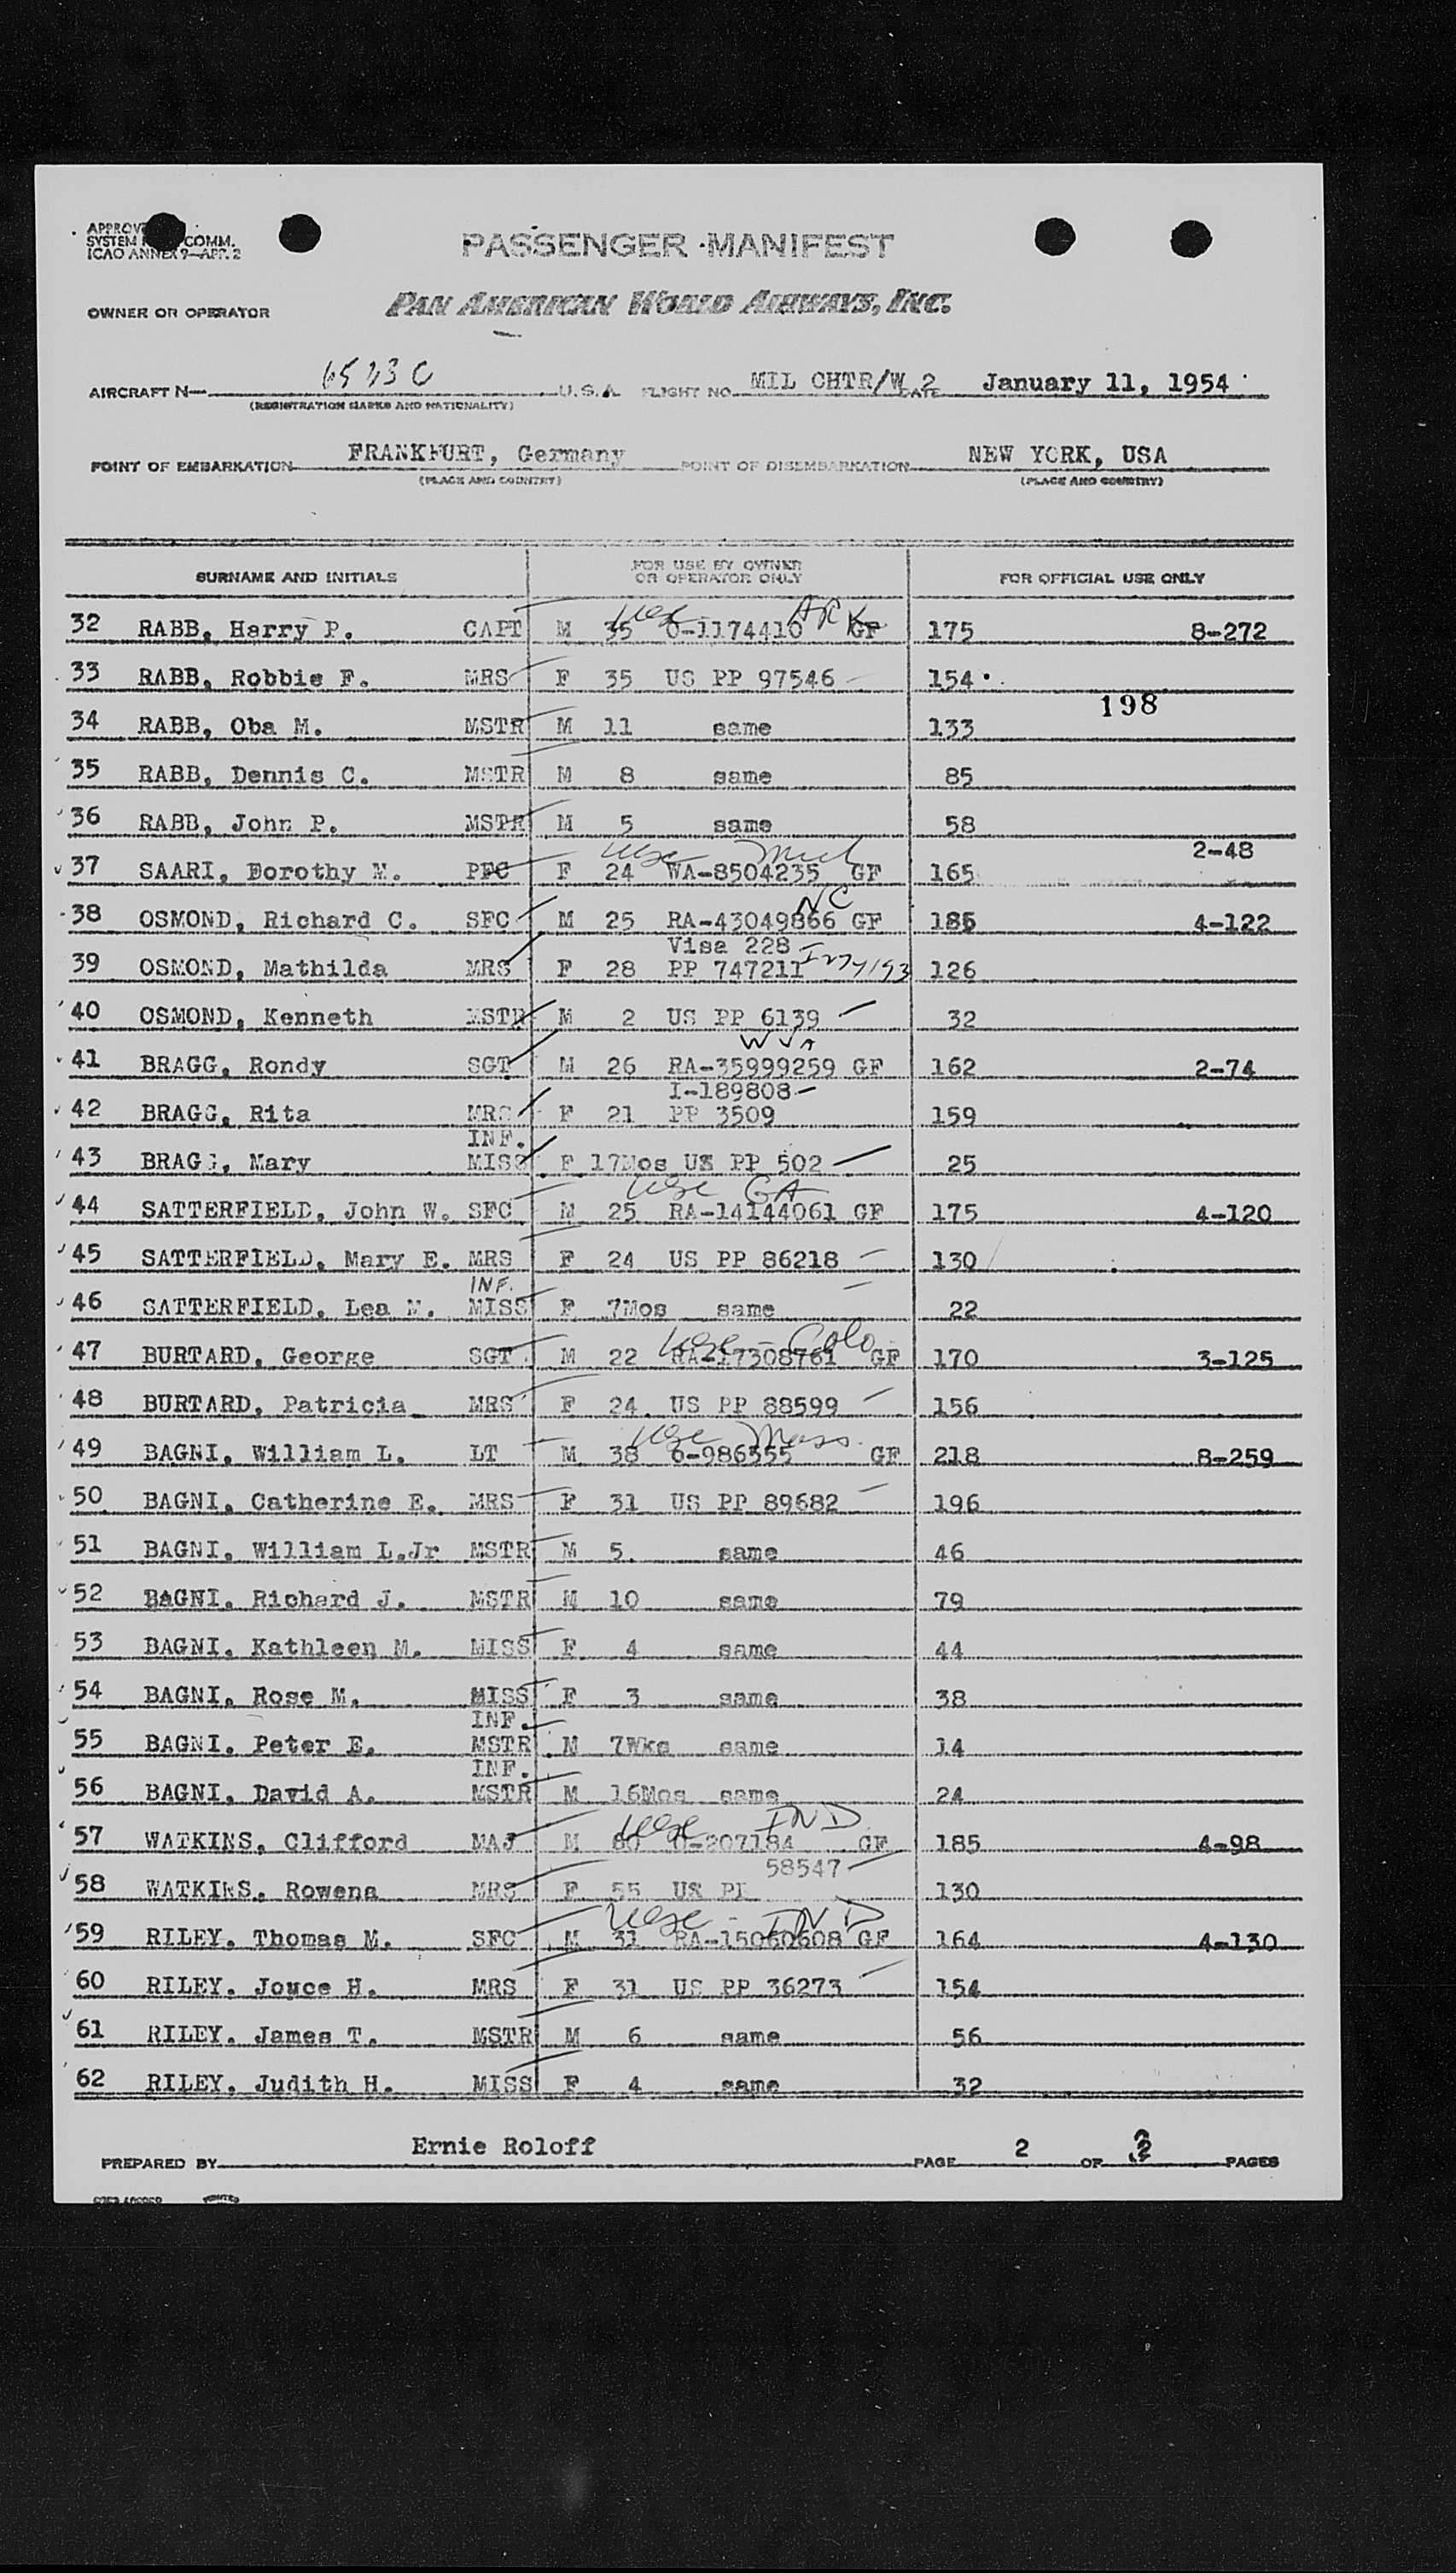 PASSENGER MANIFEST
SYSTEM COMM.
ICAO ANNEX 9—APP. 2
OWNER OR OPERATOR PAN AMERICAN WORLD AIRWAYS, INC.
AIRCRAFT N— U.S.A. FLIGHT NO. MIL CHTR/W 2 DATE January 11, 1954
(REGISTRATION MARKS AND NATIONALITY)
POINT OF EMBARKATION FRANKFURT, Germany POINT OF DISEMBARKATION NEW YORK, USA
(PLACE AND COUNTRY) (PLACE AND COUNTRY)
SURNAME AND INITIALS FOR USE BY OWNER OR OPERATOR ONLY FOR OFFICIAL USE ONLY
ARK
32 RABB, Harry P. CAPT M 35 O-1174410 GF 175 8-272
33 RABB, Robbie F. MRS F 35 US PP 97546 154
198
34 RABB, Oba M. MSTR M 11 same 133
35 RABB, Dennis C. MSTR M 8 same 85
36 RABB, John P. MSTR M 5 same 58
2-48
37 SAARI, Dorothy M. PFC F 24 WA-8504235 GF 165
NC
38 OSMOND, Richard C. SFC M 25 RA-43049866 GF 185 4-122
Visa 228
39 OSMOND, Mathilda MRS F 28 PP 747211 126
40 OSMOND, Kenneth MSTR M 2 US PP 6139 32
W VA
41 BRAGG, Rondy SGT M 26 RA-35999259 GF 162 2-74
I-189808
42 BRAGG, Rita MRS F 21 PP 3509 159
INF.
43 BRAGG, Mary MISS F 17Mos US PP 502 25
GA
44 SATTERFIELD, John W. SFC M 25 RA-14144061 GF 175 4-120
45 SATTERFIELD, Mary E. MRS F 24 US PP 86218 130
INF.
46 SATTERFIELD, Lea M. MISS F 7Mos same 22
Colo
47 BURTARD, George SGT M 22 RA-17308761 GF 170 3-125
48 BURTARD, Patricia MRS F 24 US PP 88599 156
Mass
49 BAGNI, William L. LT M 38 O-986555 GF 218 8-259
50 BAGNI, Catherine E. MRS F 31 US PP 89682 196
51 BAGNI, William L.Jr MSTR M 5 same 46
52 BAGNI, Richard J. MSTR M 10 same 79
53 BAGNI, Kathleen M. MISS F 4 same 44
54 BAGNI, Rose M. MISS F 3 same 38
INF.
55 BAGNI, Peter E. MSTR M 7Wks same 14
INF.
56 BAGNI, David A. MSTR M 16Mos same 24
IND
57 WATKINS, Clifford MAJ M 60 O-207184 GF 185 4-98
58547
58 WATKINS, Rowena MRS F 55 US PP 130
IND
59 RILEY, Thomas M. SFC M 31 RA-15060608 GF 164 4-130
60 RILEY, Joyce H. MRS F 31 US PP 36273 154
61 RILEY, James T. MSTR M 6 same 56
62 RILEY, Judith H. MISS F 4 same 32
PREPARED BY Ernie Roloff PAGE 2 OF 2 PAGES